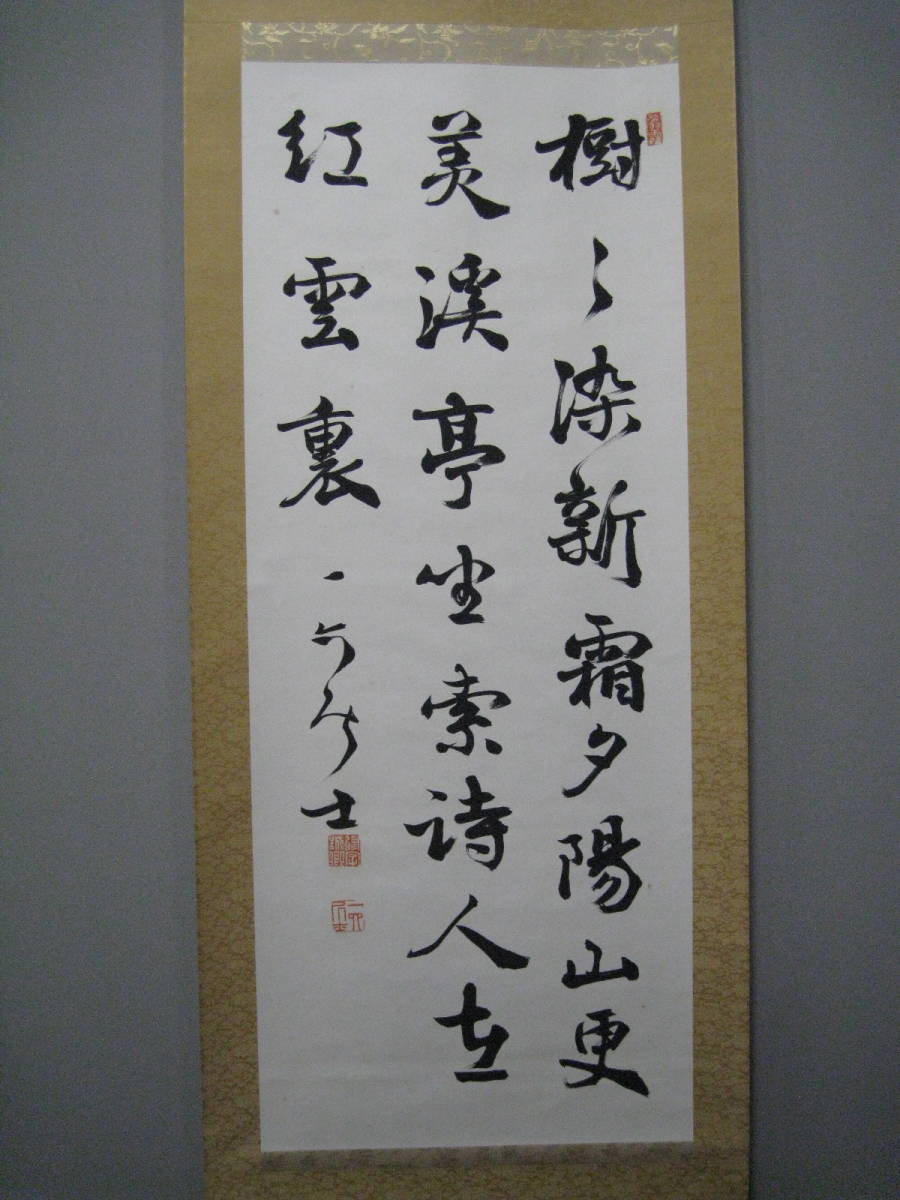 樹〻染新霜夕陽山更
美渓亭坐索詩人在
紅雲裏 一六居士